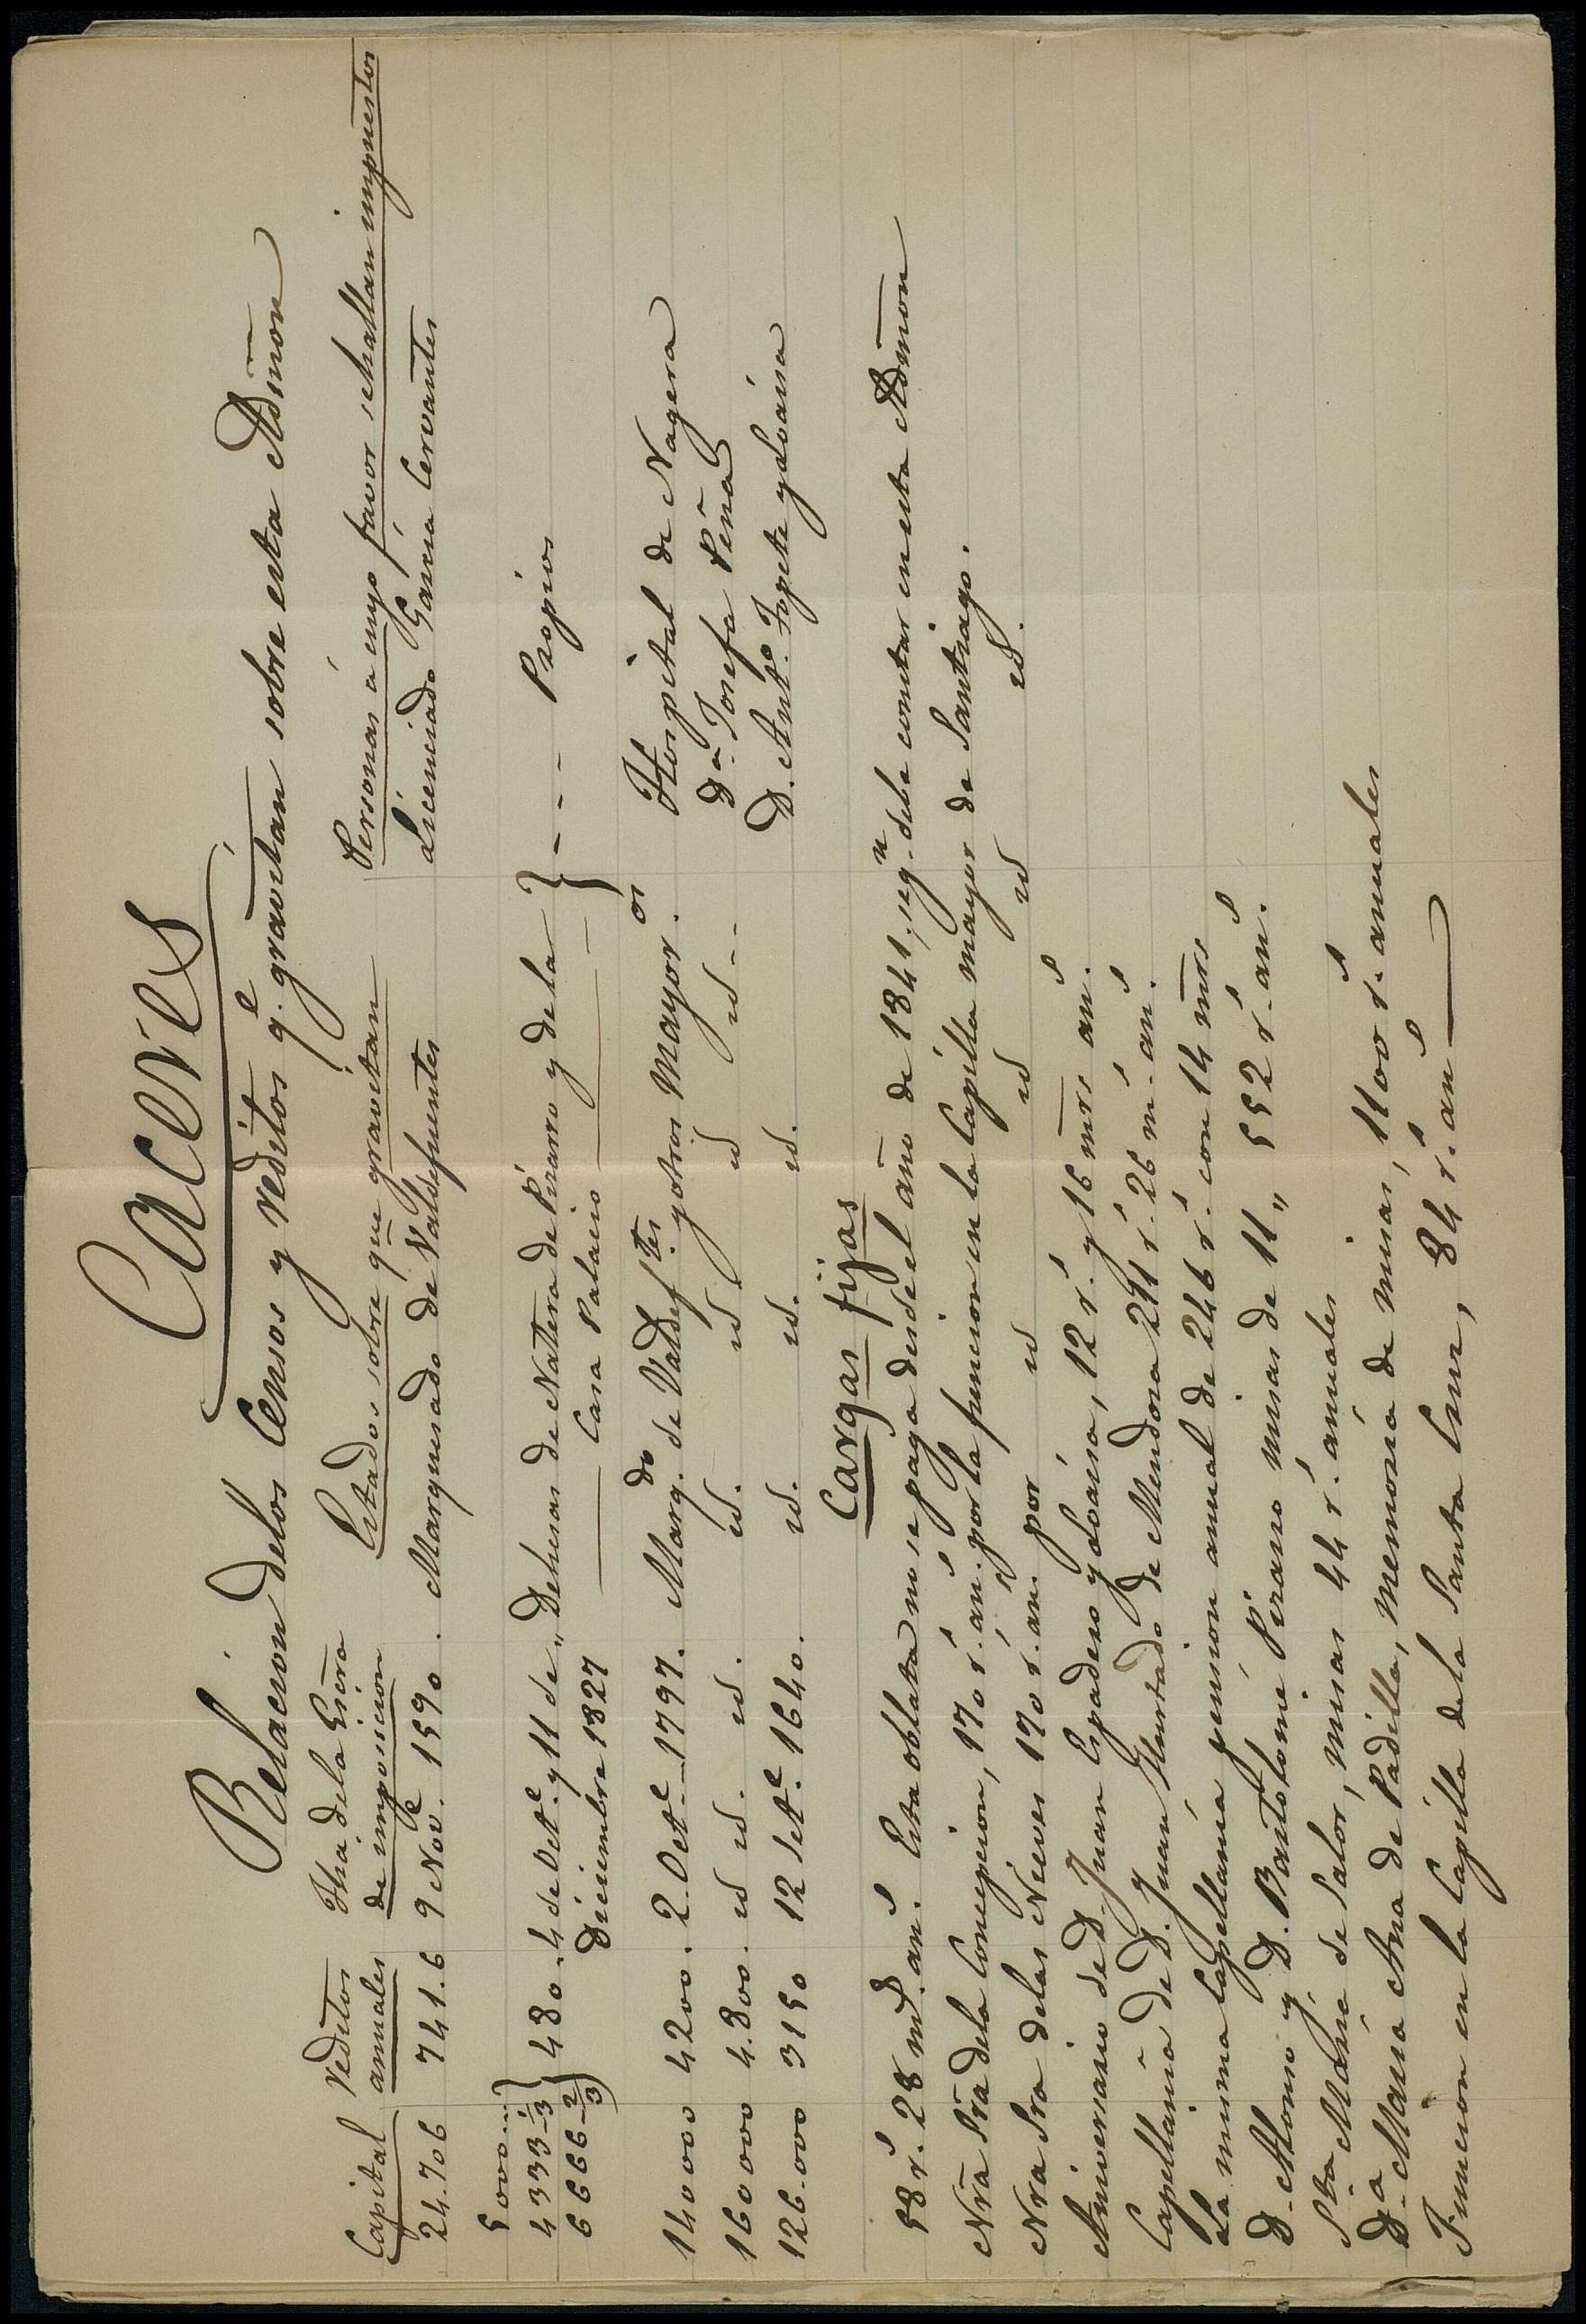 Caceres
Relación delos Censos y reditos q.e gravitan sobre esta Admon
Capital reditos annuales Fha dela Escra de imposicion Estados sobre que gravitan Personas á cuyo favor se hallan impuestos
24.706 741.6 9 Nov.e 1590. Marquesado de Valdefuentes Licenciado Garcia Cervantes
5000...
4333 1/3 } 480 - 4 de Oct.e y 11 de " Dehesas de Nattera de Pizarro y de la } - - - Propios
6666 2/3 Diciembre 1827 Casa Palacio
14000 4200. 2 Oct.e 1797. Marq.do de Valdef.tes y otros Mayor.os Hospital de Nagera
160000 4.800. id id. id. id. id id id - - D.a Josefa Peña
126.000 3150 12 Set.e 1640. id. id. id. D. Ant.o Topete y Loaisa
Cargas fijas
58 r.s 28 m.s an.s Esta oblata no se paga desde el año de 1841, seg.n debe constar en esta Admon
Nra Sra dela Concepcion, 170 r.s an.s por la funcion en la Capilla mayor de Santiago.
Nra Sra delas Nieves 170 r.s an.s por id id id id.
Aniversario de D. Juan Espadero y Loaisa, 12 r.s y 16 mrs an.s
Capellania de D. Juan Hurtado de Mendoza 211 r.s 26 m.s an.s
La misma Capellania pension anual de 246 r.s con 14 mrs
D. Alonso y D. Bartolomé Pizarro misas de 11 " 552 r.s an.s
S.ta Maria de Salor, misas 44 r.s anuales
D.a Maria Ana de Padilla, memoria de misas, 1100 r.s anuales
Funcion en la Capilla dela Santa Cruz, 84 r.s an.s